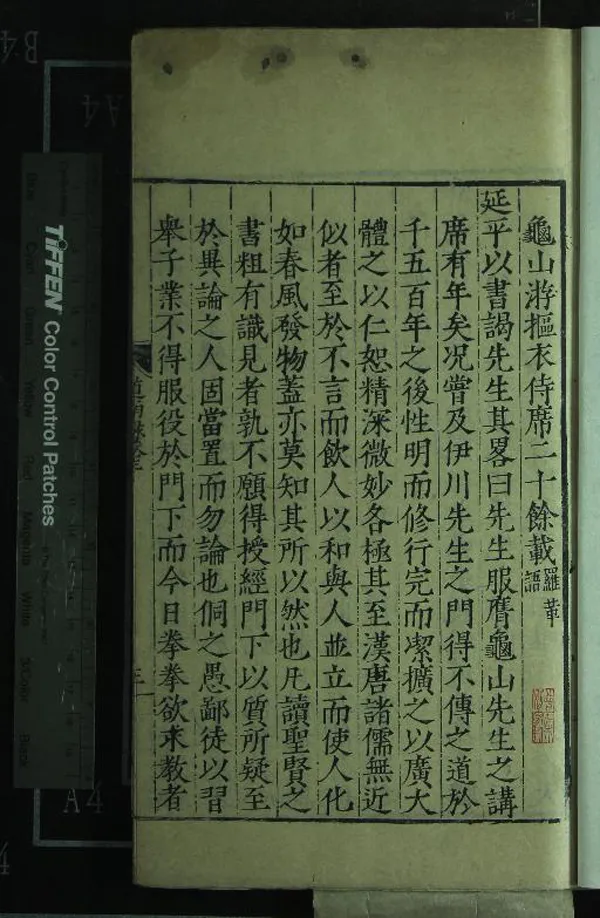 龜山游摳衣侍席二十餘載羅革語
延平以書謁先生其畧曰先生服膺龜山先生之講
席有年矣况嘗及伊川先生之門得不傳之道於
千五百年之後性明而修行完而潔擴之以廣大
體之以仁恕精深微妙各極其至漢唐諸儒無近
似者至於不言而飲人以和與人並立而使人化
如春風發物蓋亦莫知其所以然也凡讀聖賢之
書粗有識見者孰不願得授經門下以質所疑至
於異論之人固當置而勿論也侗之愚鄙徒以習
舉子業不得服役於門下而今日拳拳欲求教者
TIFFEN Color Control Patches
A4
A4
B4
Magenta
White
3/Color
Black